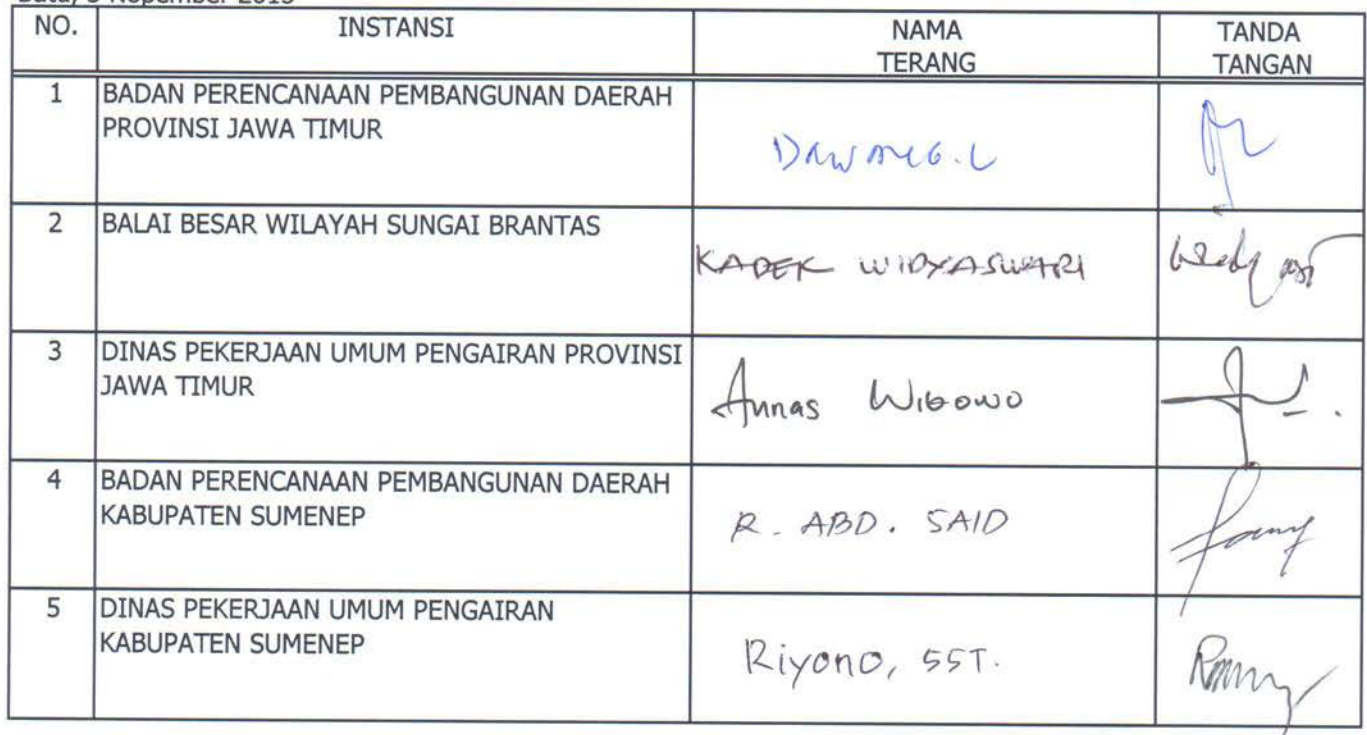 NO.
INSTANSI
NAMA
TERANG
TANDA
TANGAN
1
BADAN PERENCANAAN PEMBANGUNAN DAERAH
PROVINSI JAWA TIMUR
2
BALAI BESAR WILAYAH SUNGAI BRANTAS
KADEK WIDYASWARI
3
DINAS PEKERJAAN UMUM PENGAIRAN PROVINSI
JAWA TIMUR
Annas Wibowo
4
BADAN PERENCANAAN PEMBANGUNAN DAERAH
KABUPATEN SUMENEP
R. ABD. SAID
5
DINAS PEKERJAAN UMUM PENGAIRAN
KABUPATEN SUMENEP
Riyono, SST.